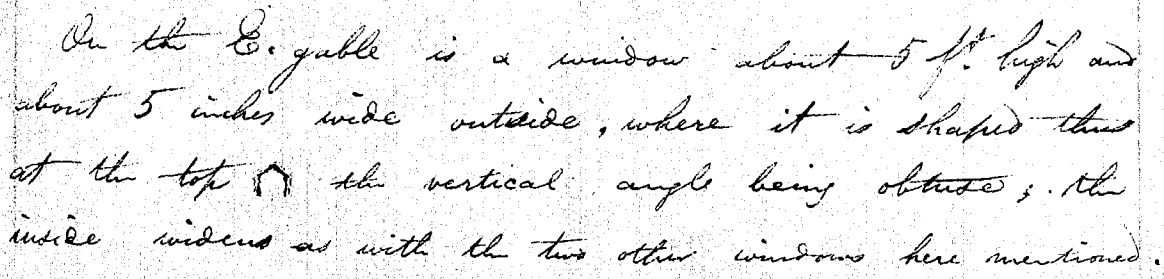 On the E. gable is a window about 5 ft. high and
about 5 inches wide outside, where it is shaped thus
at the top the vertical angle being obtuse; the
inside widens as with the two other windows here mentioned.